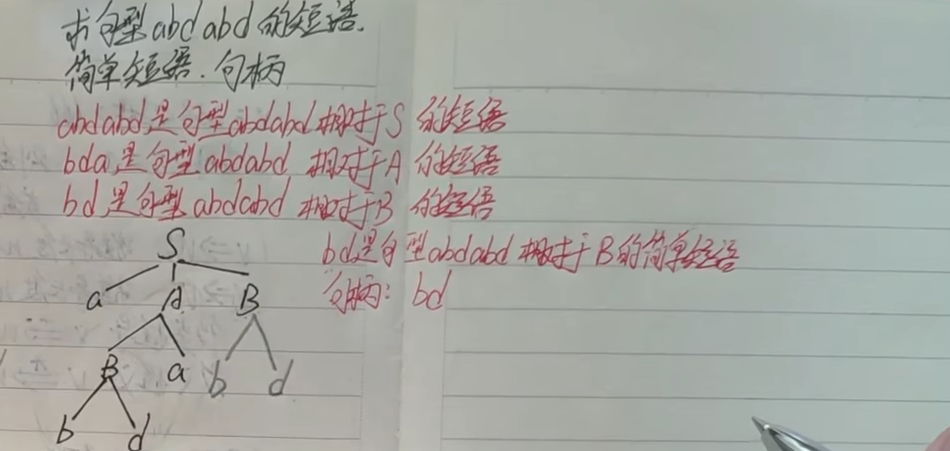 求句型abdabd的短语.
简单短语.句柄
abdabd是句型abdabd相对于S的短语
bda是句型abdabd相对于A的短语
bd是句型abdabd相对于B的短语
bd是句型abdabd相对于B的简单短语
句柄: bd
S
a A B
B a b d
b d